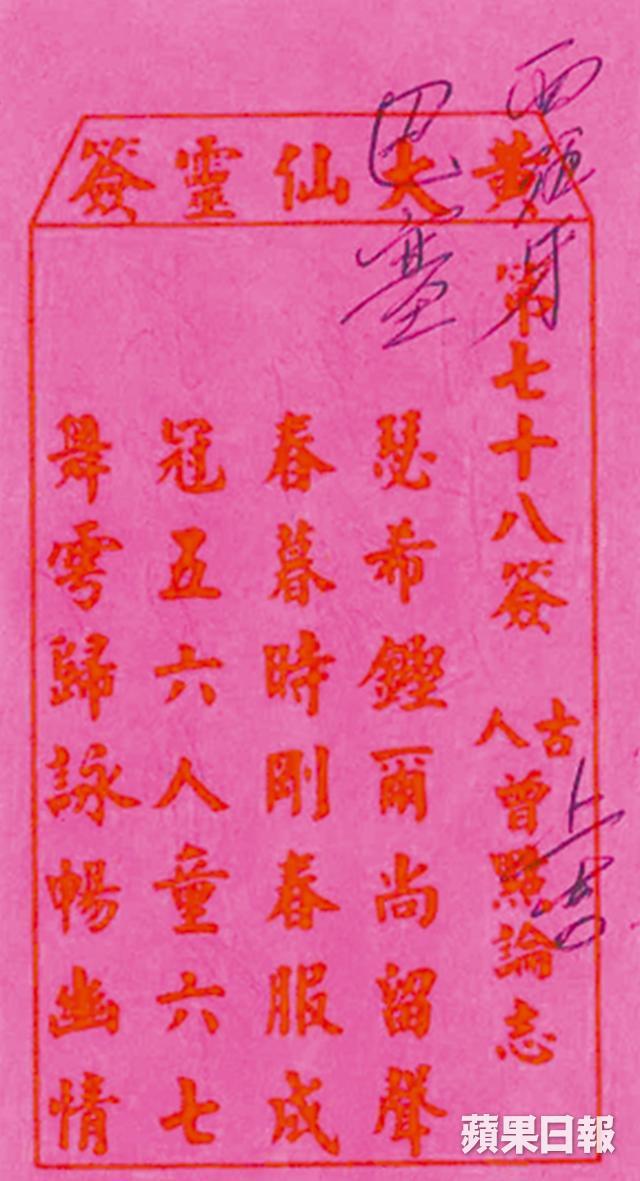 黃大仙靈簽
第七十八簽 古人 曾點論志
瑟希鏗爾尚留聲
春暮時剛春服成
冠五六人童六七
舞雩歸詠暢幽情
西班牙
巴塞
上吉
蘋果日報